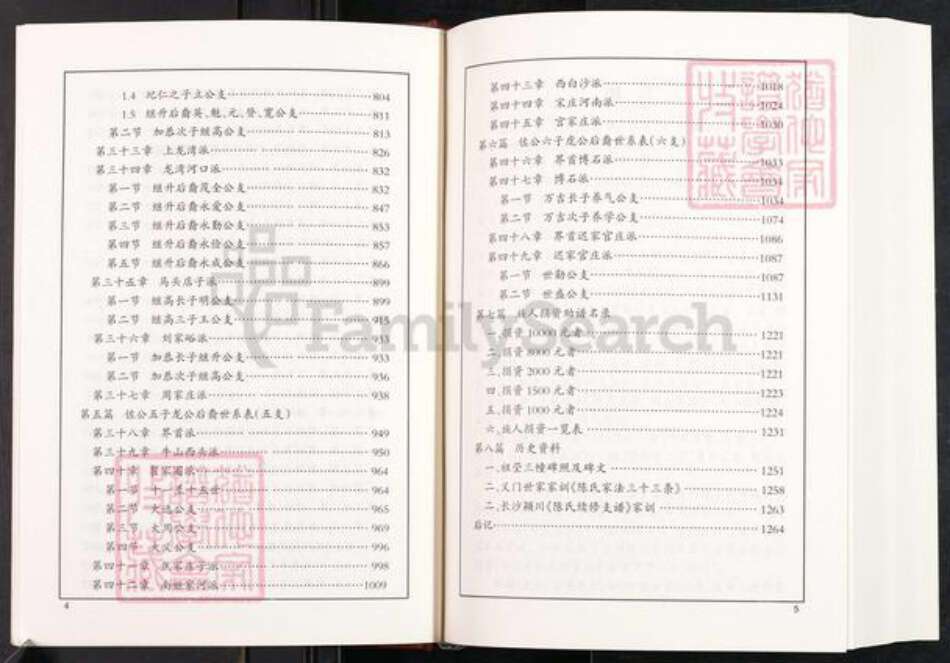 1.4 圮仁之子立公支 804
1.5 继升后裔英、魁、元、登、宽公支 811
第二节 加恭次子继高公支 813
第三十三章 上龙湾派 826
第三十四章 龙湾河口派 832
第一节 继升后裔茂全公支 832
第二节 继升后裔永爱公支 847
第三节 继升后裔永勤公支 853
第四节 继升后裔永俭公支 857
第五节 继升后裔永成公支 866
第三十五章 马头店子派 899
第一节 继高长子明公支 899
第二节 继高三子玉公支 915
第三十六章 刘家峪派 933
第一节 加恭长子继升公支 933
第二节 加恭次子继高公支 936
第三十七章 周家庄派 938
第五篇 佐公五子龙公后裔世系表(五支)
第三十八章 界首派 949
第三十九章 牛山西头派 950
第四十章 家圈派 964
第一节 十一至十五世 964
第二节 大选公支 965
第三节 大周公支 969
第四节 大义公支 996
第四十一章 家庄子派 998
第四十二章 南 家河派 1009
4
第四十三章 西白沙派 1018
第四十四章 宋庄河南派 1024
第四十五章 宫家庄派 1030
第六篇 佐公六子虎公后裔世系表(六支)
第四十六章 界首博石派 1033
第四十七章 博石派 1034
第一节 万吉长子养气公支 1034
第二节 万吉次子养学公支 1074
第四十八章 界首迟家官庄派 1086
第四十九章 迟家官庄派 1087
第一节 世勋公支 1087
第二节 世盛公支 1131
第七篇 族人捐资助谱名录
一、捐资 10000 元者 1221
二、捐资 8000 元者 1221
三、捐资 2000 元者 1221
四、捐资 1500 元者 1223
五、捐资 1000 元者 1224
六、族人捐资一览表 1231
第八篇 历史资料
一、祖茔三幢碑照及碑文 1251
二、义门世家家训《陈氏家法三十三条》 1258
二、长沙颍川《陈氏续修支谱》家训 1263
后记 1264
5
FamilySearch